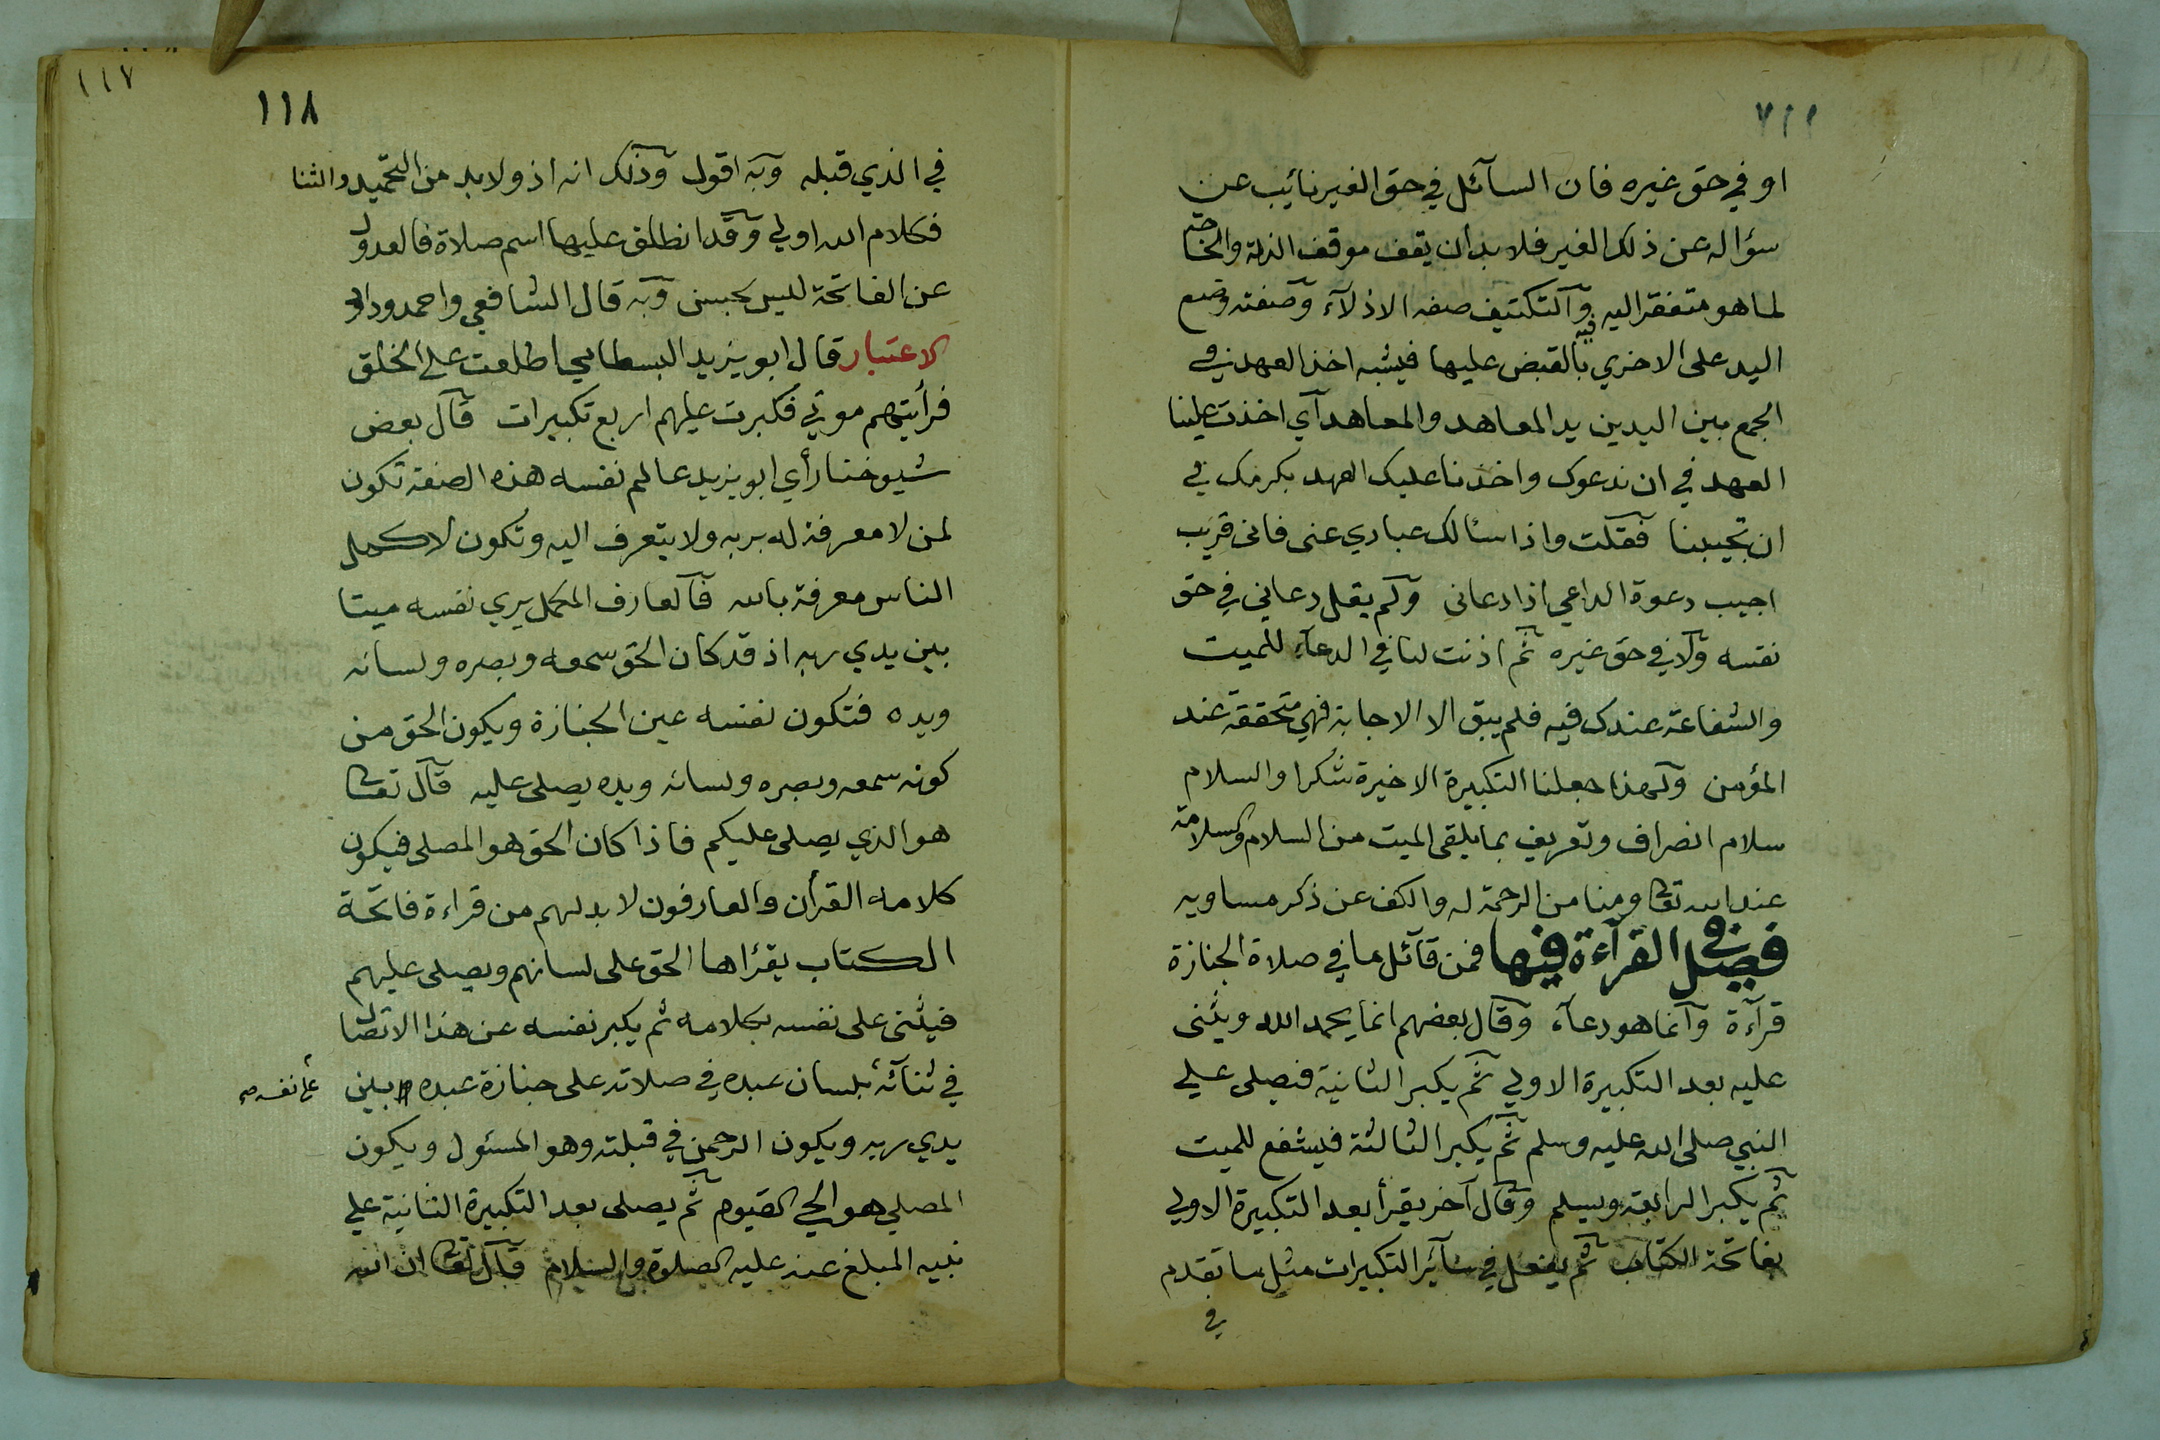 ١١٧
او في حق غيره فان السآئل في حق الغير نائب عن
سؤاله عن ذلك الغير فلا بد أن يقف موقف الذلة والحاجة
لما هو متفقر اليه والتكتيف صفه الاذلآء وصفته وضع
اليد على الاخري بالقبض عليها فيشبه اخذ العهد في
الجمع بين اليدين يد المعاهد والمعاهد أي اخذت علينا
العهد في ان ندعوك واخذنا عليك العهد بكرمك في
ان تجيبنا فقلت واذا سئالك عبادي عنى فانى قريب
اجيب دعوة الداعي اذا دعانى ولم يقل دعاني في حق
نفسه ولا في حق غيره ثم اذنت لنا في الدعآء للميت
والشفاعة عندك فيه فلم يبق الا الاجابة فهي متحققة عند
المؤمن ولهذا جعلنا التكبيرة الاخيرة شكرا والسلام
سلام انصراف وتعريف بما يلقى الميت من السلام والسلامة
عند الله تعا ومنا من الرحمة له والكف عن ذكر مساويه
فصل في القرآءة فيها فمن قآئل ما في صلاة الجنازة
قرآءة وانما هو دعآء وقال بعضهم انما يحمد الله ويثنى
عليه بعد التكبيرة الاولي ثم يكبر الثانية فيصلى علي
النبي صلى الله عليه وسلم ثم يكبر الثالثة فيشفع للميت
ثم يكبر الرابعة ويسلم وقال آخر يقرأ بعد التكبيرة الاولي
بفاتحة الكتاب ثم يفعل في سآئر التكبيرات مثل ما تقدم
في
١١٧
١١٨
في الذي قبله وبه اقول وذلك انه اذ ولا بد من التحميد والثنا
فكلام الله اولي وقد انطلق عليها اسم صلاة فالعدول
عن الفاتحة لليس بحسن وبه قال الشافعي واحمد وداود
الاعتبار قال ابو يزيد البسطامي اطلعت على الخلق
فرأيتهم موتي فكبرت عليهم اربع تكبيرات قال بعض
شيوخنا رأي ابو يزيد عالم نفسه هذه الصفة تكون
لمن لا معرفة له بربه ولا يتعرف اليه وتكون لاكمل
الناس معرفة بالله فالعارف المكمل يري نفسه ميتا
بين يدي ربه اذ قد كان الحق سمعه وبصره ولسانه
ويده فتكون نفسه عين الجنازة ويكون الحق من
كونه سمعه وبصره ولسانه ويده يصلى عليه قال تعا
هو الذي يصلى عليكم فاذا كان الحق هو المصلى فيكون
كلامه القرأن والعارفون لا بد لهم من قراءة فاتحة
الكتاب يقرئاها الحق على لسانهم ويصلى عليهم
فيثنى على نفسه بكلامه ثم يكبر نفسه عن هذا الاتصال
في ثنآئه بلسان عبده في صلاته على جنازة عبده بين
على نفسه صح
يدي ربه ويكون الرحمن في قبلته وهو المسئول ويكون
المصلي هو الحي القيوم ثم يصلى بعد التكبيرة الثانية علي
نبيه المبلغ عنه عليه الصلوة والسلام قال تعا ان الله